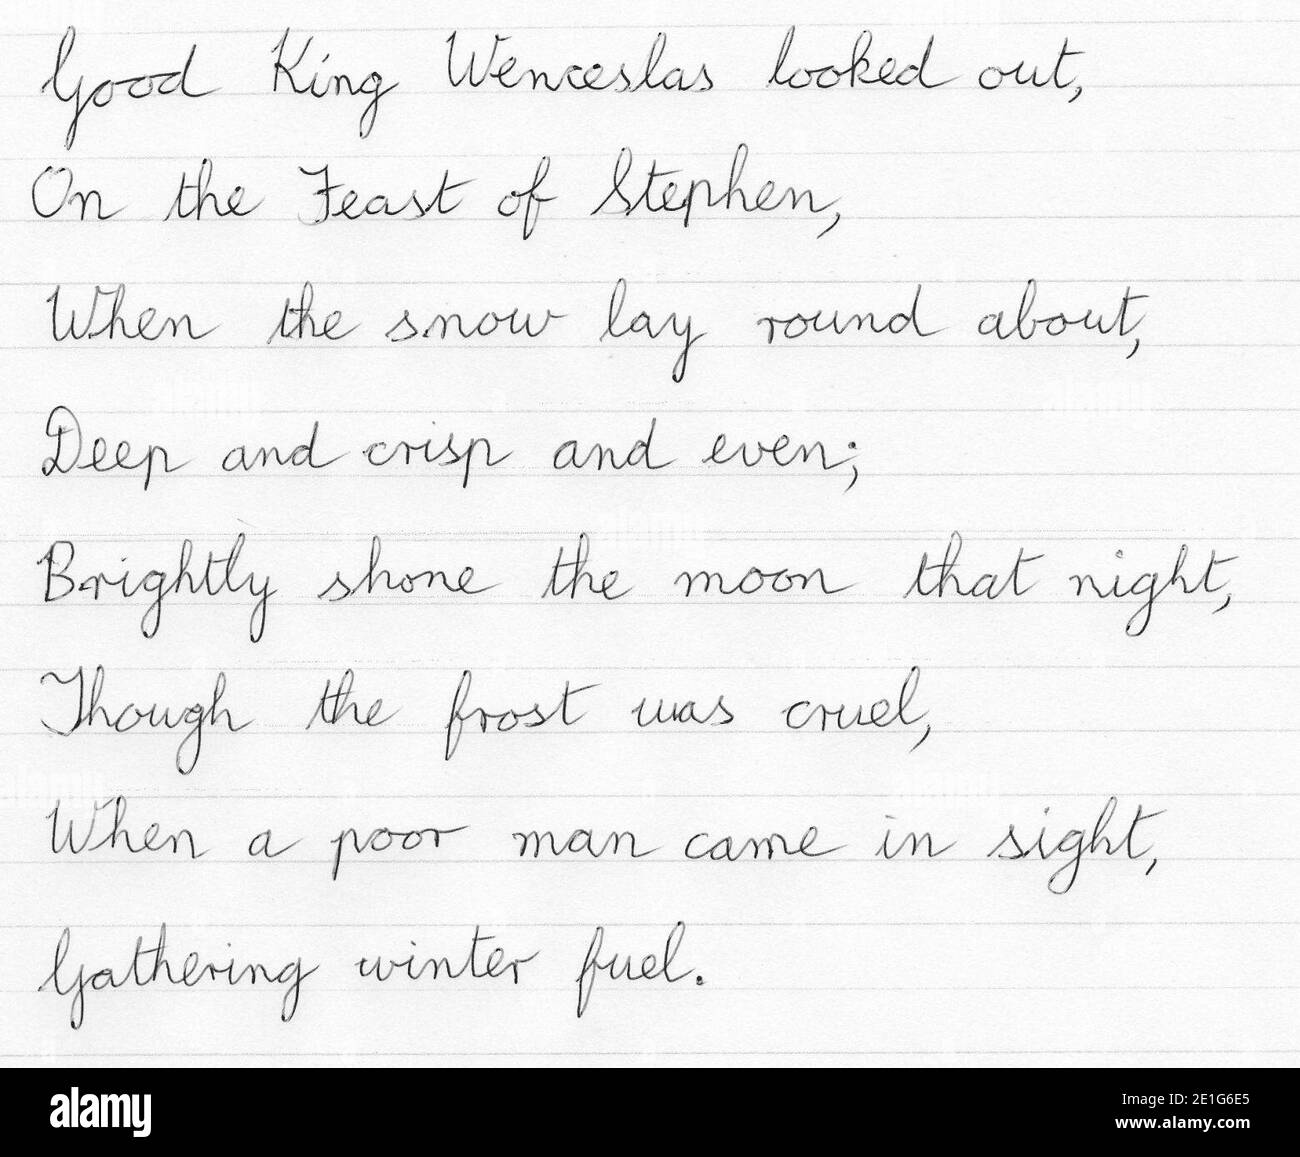 Good King Wenceslas looked out,
On the Feast of Stephen,
When the snow lay round about,
Deep and crisp and even;
Brightly shone the moon that night,
Though the frost was cruel,
When a poor man came in sight,
Gathering winter fuel.
alamy
Image ID: 2E1G6E5
www.alamy.com